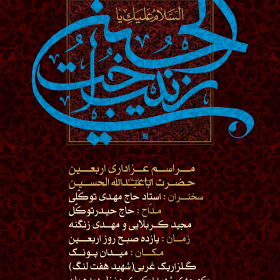 السلام علیک یا
زینب
الحسین
مراسم عزاداری اربعین
حضرت اباعبدالله الحسین
سخنران : استاد حاج مهدی توکلی
مداح : حاج حیدر توکل
مجید کربلایی و مهدی زنگنه
زمان : یازده صبح روز اربعین
مکان : میدان پونک
گلزار یک غربی (شهید هفت لنگ)